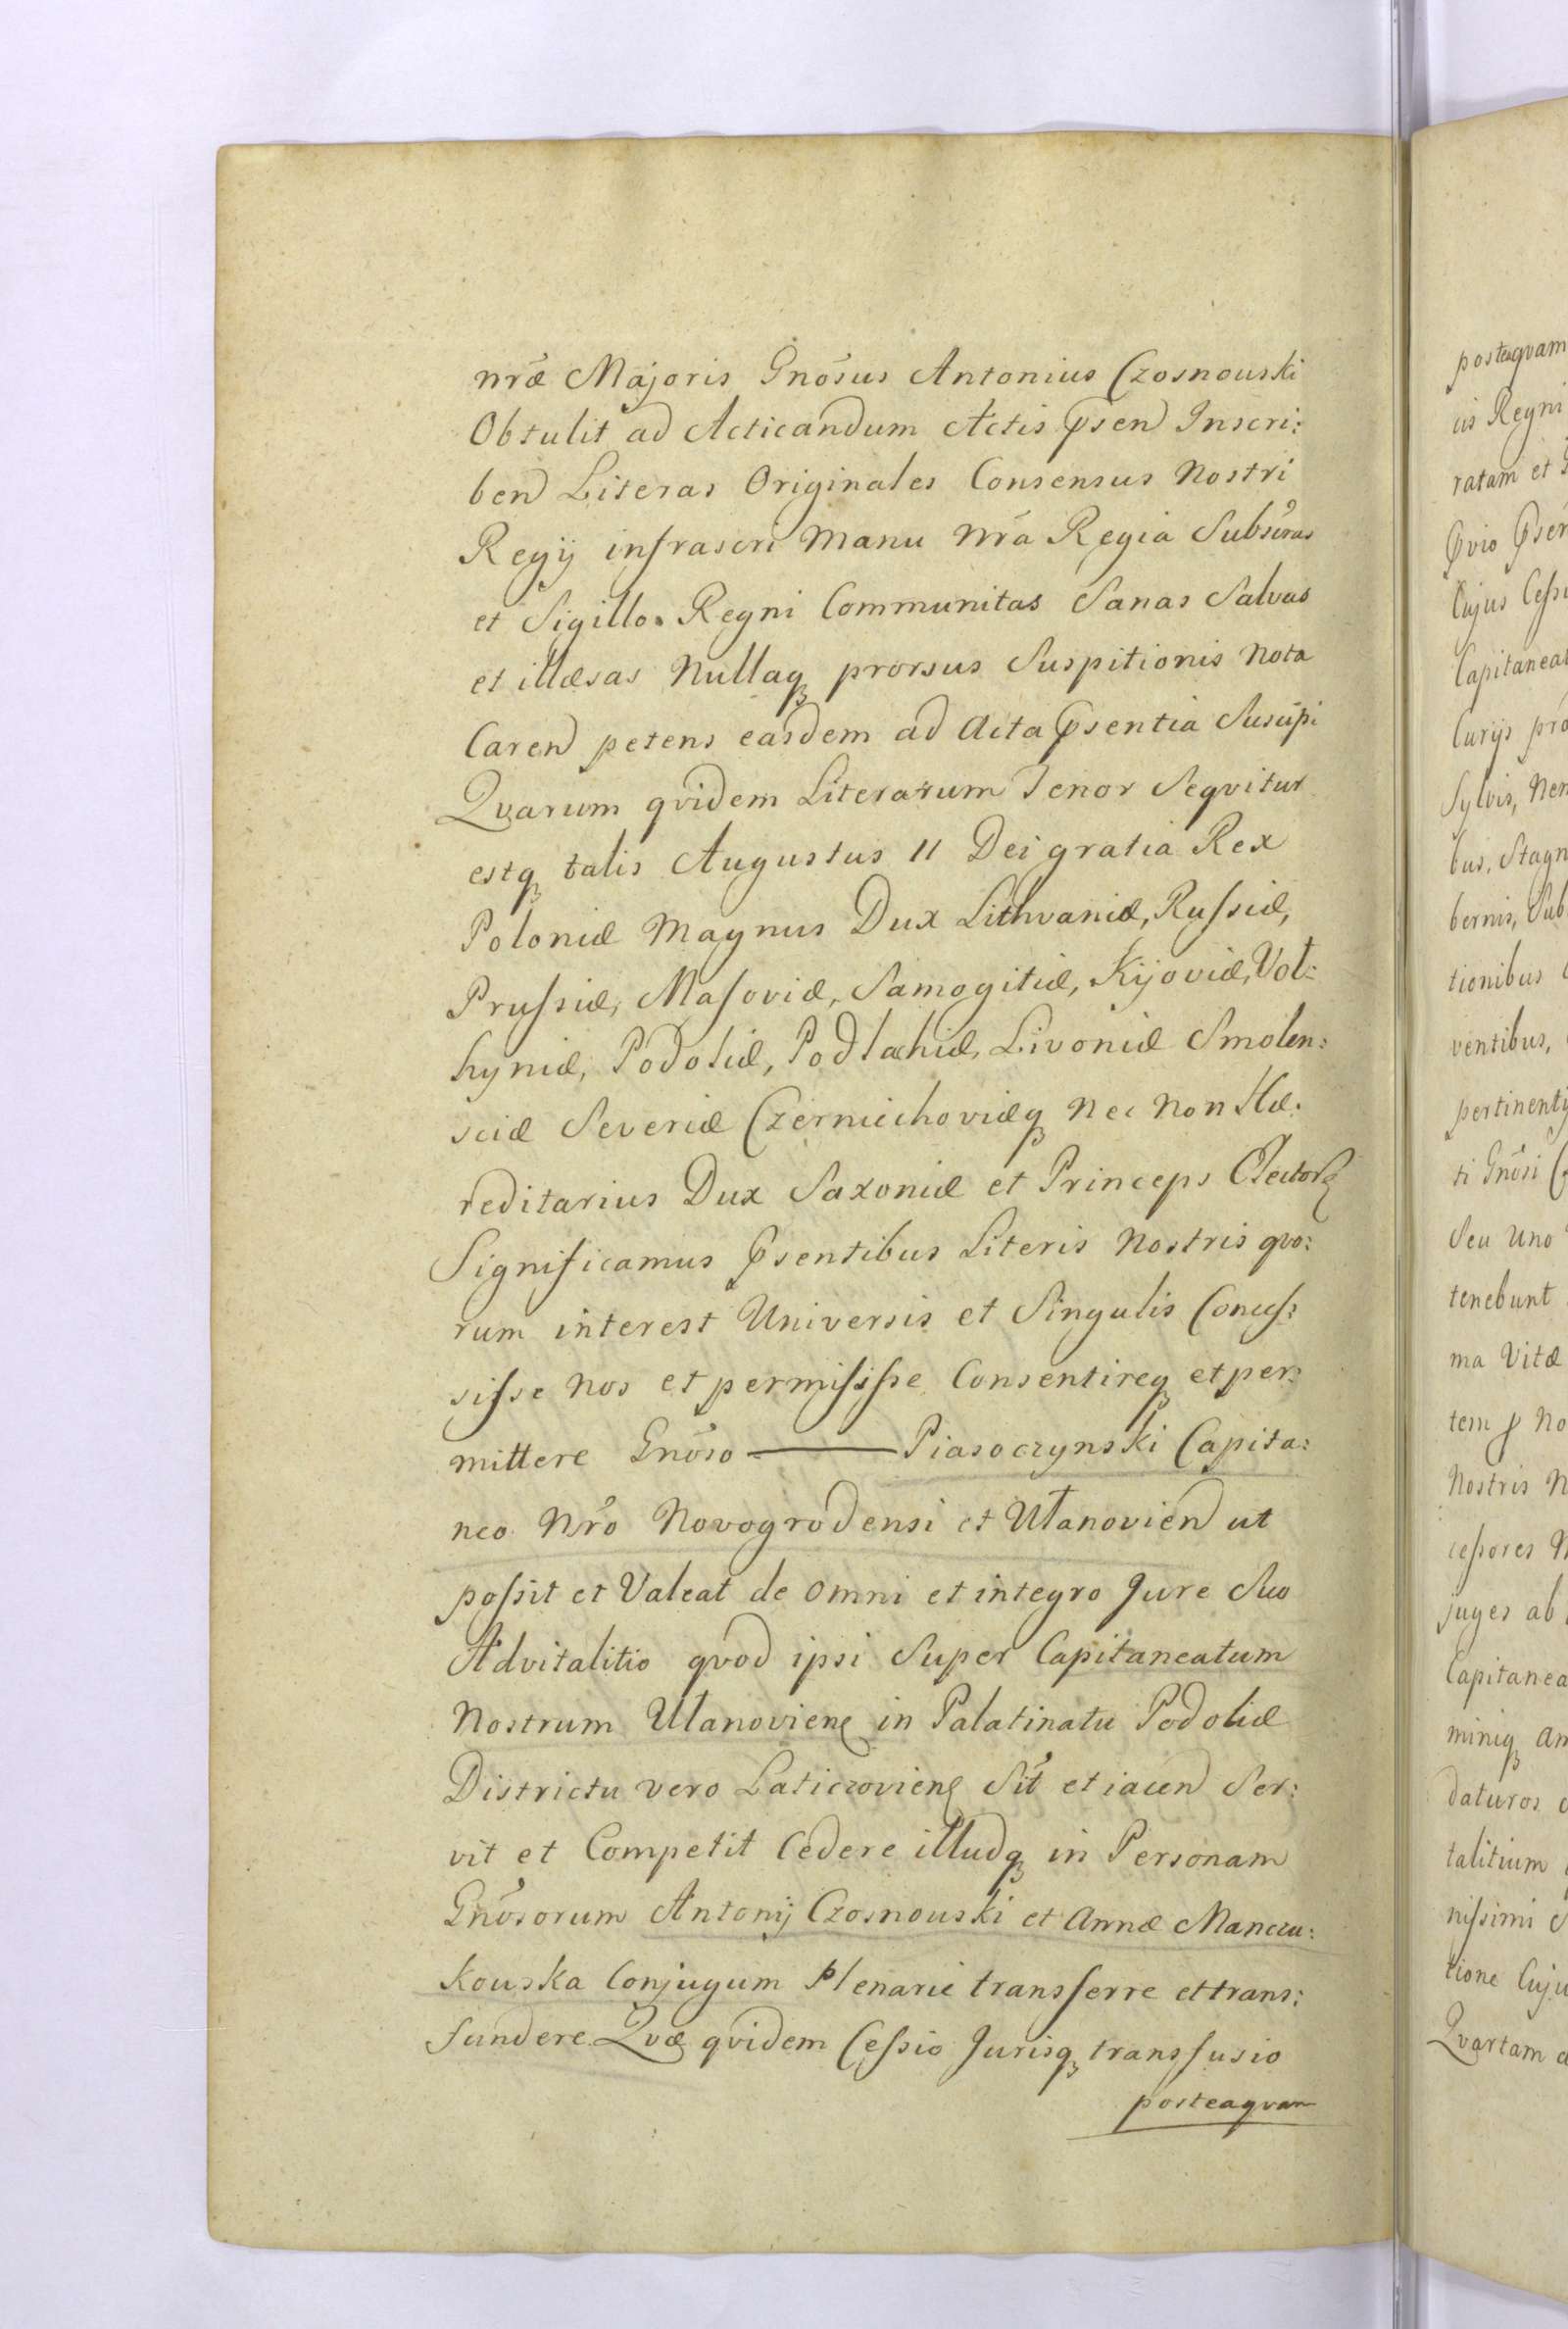 nræ Majoris Gnosus Antonius Czosnouski
Obtulit ad Acticandum Actis Psen Inscri:
ben Literas Originales Consensus Nostri
Regij infrascri Manu Nra Regia Subscras
et Sigillo Regni Communitas Sanas Salvas
et illæsas Nullaq prorsus Suspitionis Nota
Caren petens easdem ad Acta Psentia Suscipi
Qvarum qvidem Literarum Tenor Seqvitur
estq talis Augustus II Dei gratia Rex
Poloniæ Magnus Dux Lithvaniæ, Russiæ,
Prussiæ, Masoviæ, Samogitiæ, Kijoviæ, Vol:
hyniæ, Podoliæ, Podlachiæ, Livoniæ Smolen:
sciæ Severiæ Czerniechoviæq Nec Non Hæ:
reditarius Dux Saxoniæ et Princeps Elector
Significamus Psentibus Literis Nostris qvo:
rum interest Universis et Singulis Conces:
sisse Nos et permisisse Consentireq et per:
mittere Gnoso ——— Piasoczynski Capita:
neo Nro Novogrodensi et Ułanovien ut
possit et Valeat de omni et integro Jure Suo
Advitalitio qvod ipsi Super Capitaneatum
Nostrum Ułanovien in Palatinatu Podoliæ
Districtu vero Laticzovien Sit et iacen Ser:
vit et Competit Cedere illudq in Personam
Gnosorum Antonij Czosnouski et Annæ Manczu:
kouska Conjugum Plenarie transferre et trans:
fundere Qvæ qvidem Cessio Jurisq transfusio
posteaqvam
posteaqvam
iis Regni
ratam et
Pvio Psen
Cujus Cessi
Capitaneat
Curijs pro
Sylvis, Nem
bus, Stagn
bernis, Sub
tionibus
ventibus,
pertinentij
ti Gnosi
Seu Uno
tenebunt
ma Vitæ
tem p No
Nostris N
cessores N
juges ab
Capitanea
miniq an
daturos
talitium
nissimi
tione Cuju
Qvartam a